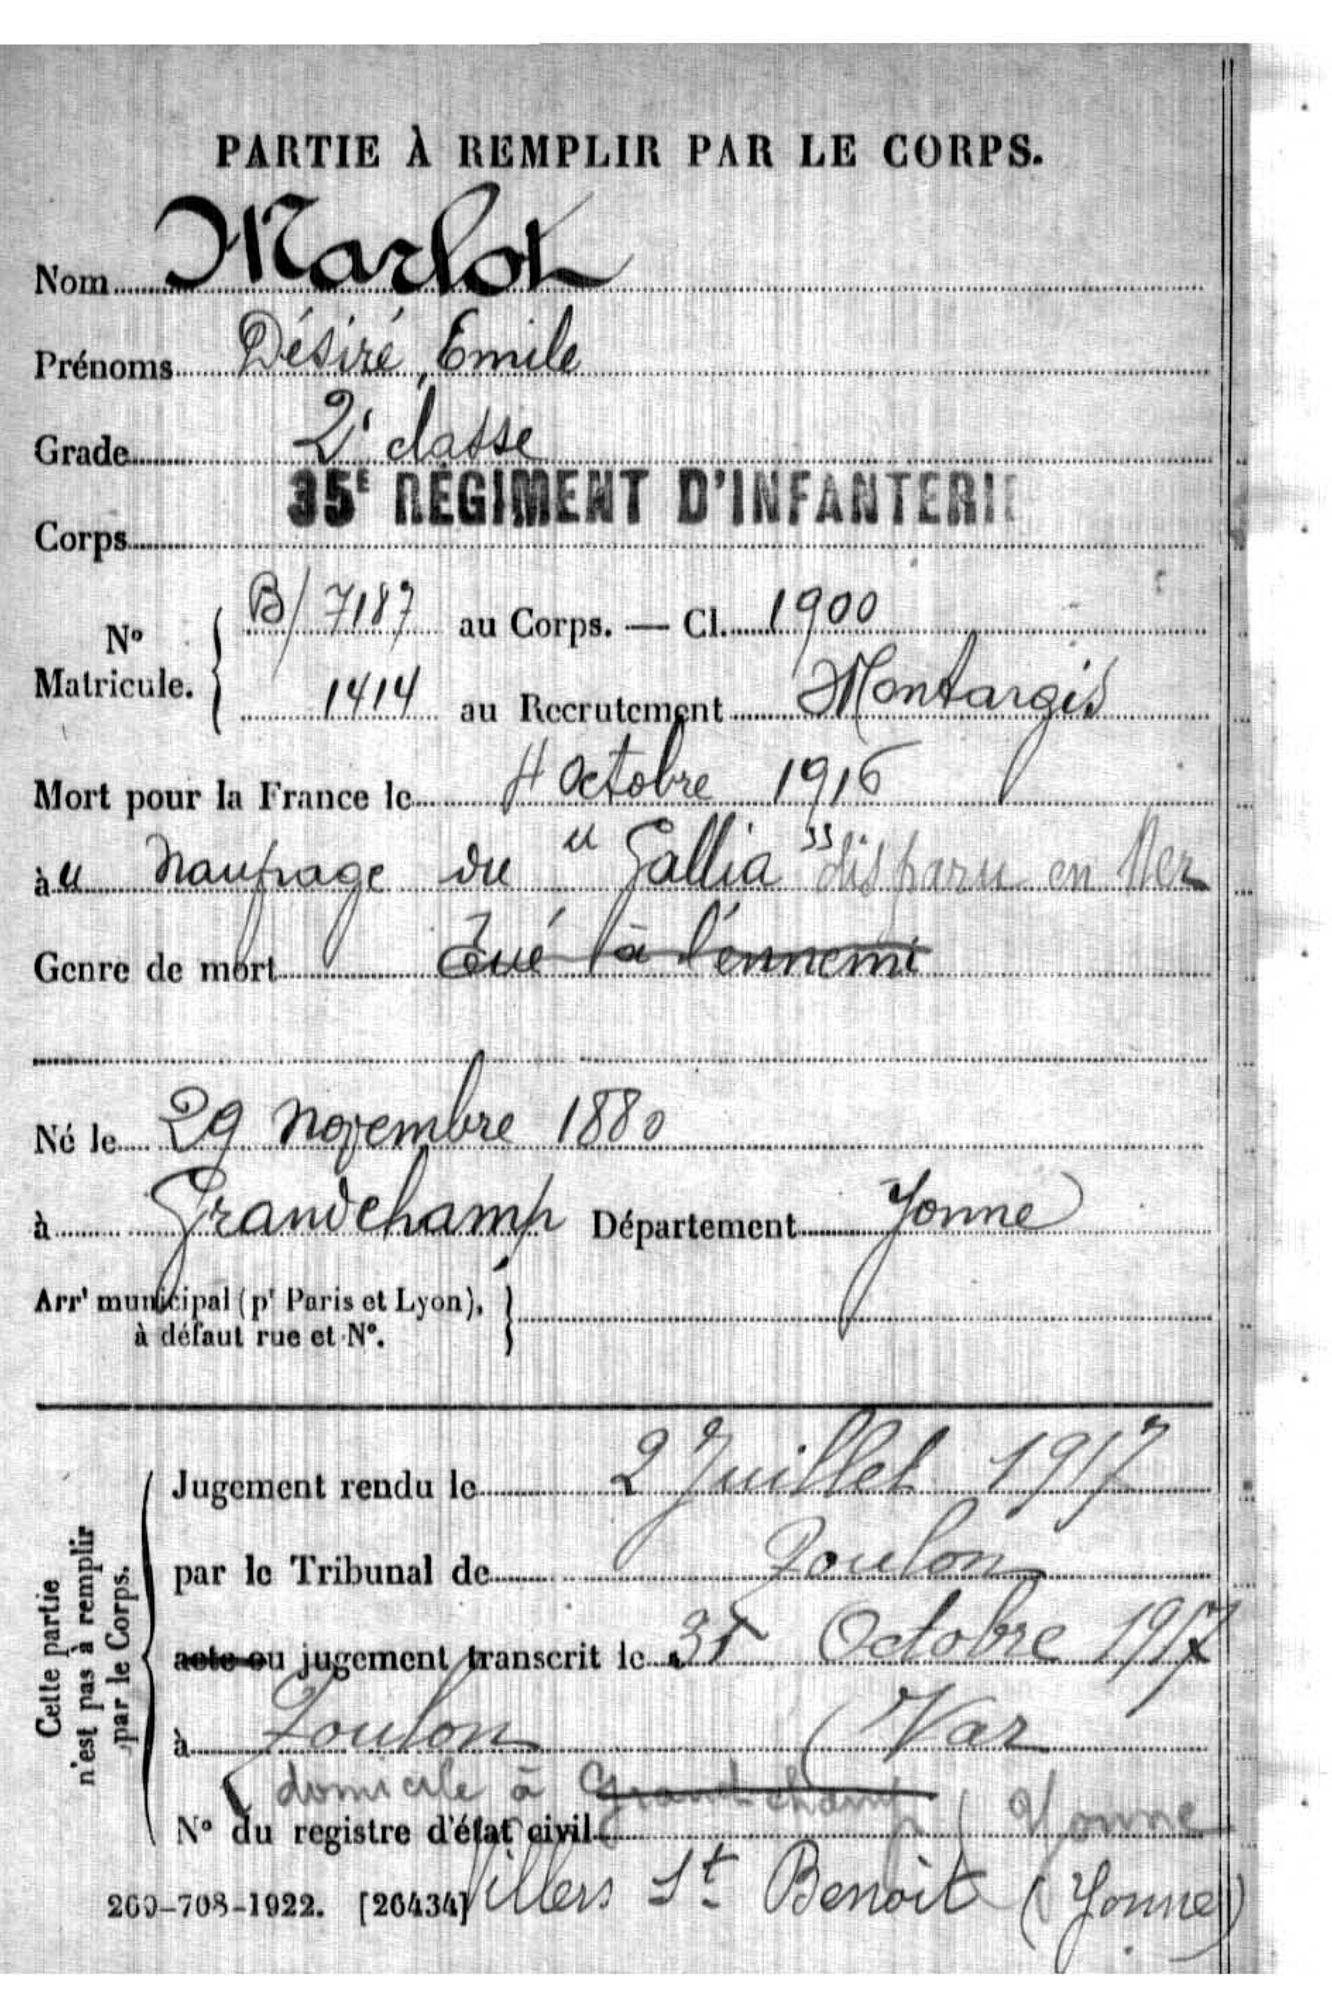 PARTIE À REMPLIR PAR LE CORPS.
Nom Marlot
Prénoms Désiré, Emile
Grade 2e classe
35E RÉGIMENT D'INFANTERIE
Corps
No Matricule. { B/ 7187 au Corps. — Cl. 1900
1414 au Recrutement Montargis
Mort pour la France le 4 Octobre 1916
à u Naufrage du "Gallia" disparu en Mer
Genre de mort Tué à l'ennemi
Né le 29 Novembre 1880
à Grandchamp Département Yonne
Arrt municipal (pr Paris et Lyon),
à défaut rue et No.
Cette partie
n'est pas à remplir
par le Corps.
Jugement rendu le 2 Juillet 1917
par le Tribunal de Toulon
acte ou jugement transcrit le 31 Octobre 1917
à Toulon (Var
domicile à Grandchamp (Yonne
No du registre d'état civil
Villers St Benoit (Yonne)
269-708-1922. [26434]